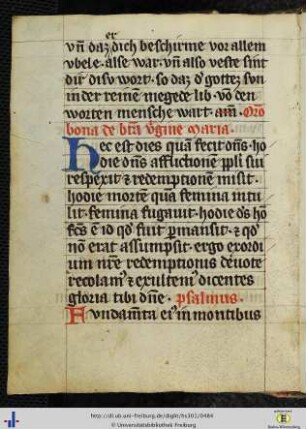 er
vñ daz dich beschirme vor allem
vbele· alse war· vñ also veste sint
dir disv wort· so daz d' gottez svn
in der reinē megede lib· vō den
worten mensche wart· am̄· Orō
bona de btā v'gine maria·
Hec est dies quā fecit dn̄s· ho
die dn̄s afflictionem ppl'i sui
respexit ⁊ redemptionem misit·
hodie mortē quā femina intu
lit· femina fugauit· hodie d's hō
fcs̄ ē id qd' fuit p'mansit· ⁊ qd'
non erat assumpsit· ergo exordi
um nr̄e redemptionis deuote
recolam' ⁊ exultem' dicentes
gloria tibi dn̄e· psalmus·
Fvndam̄ta ei' in montibus
http://dl.ub.uni-freiburg.de/diglit/hs361/0484
© Universitätsbibliothek Freiburg